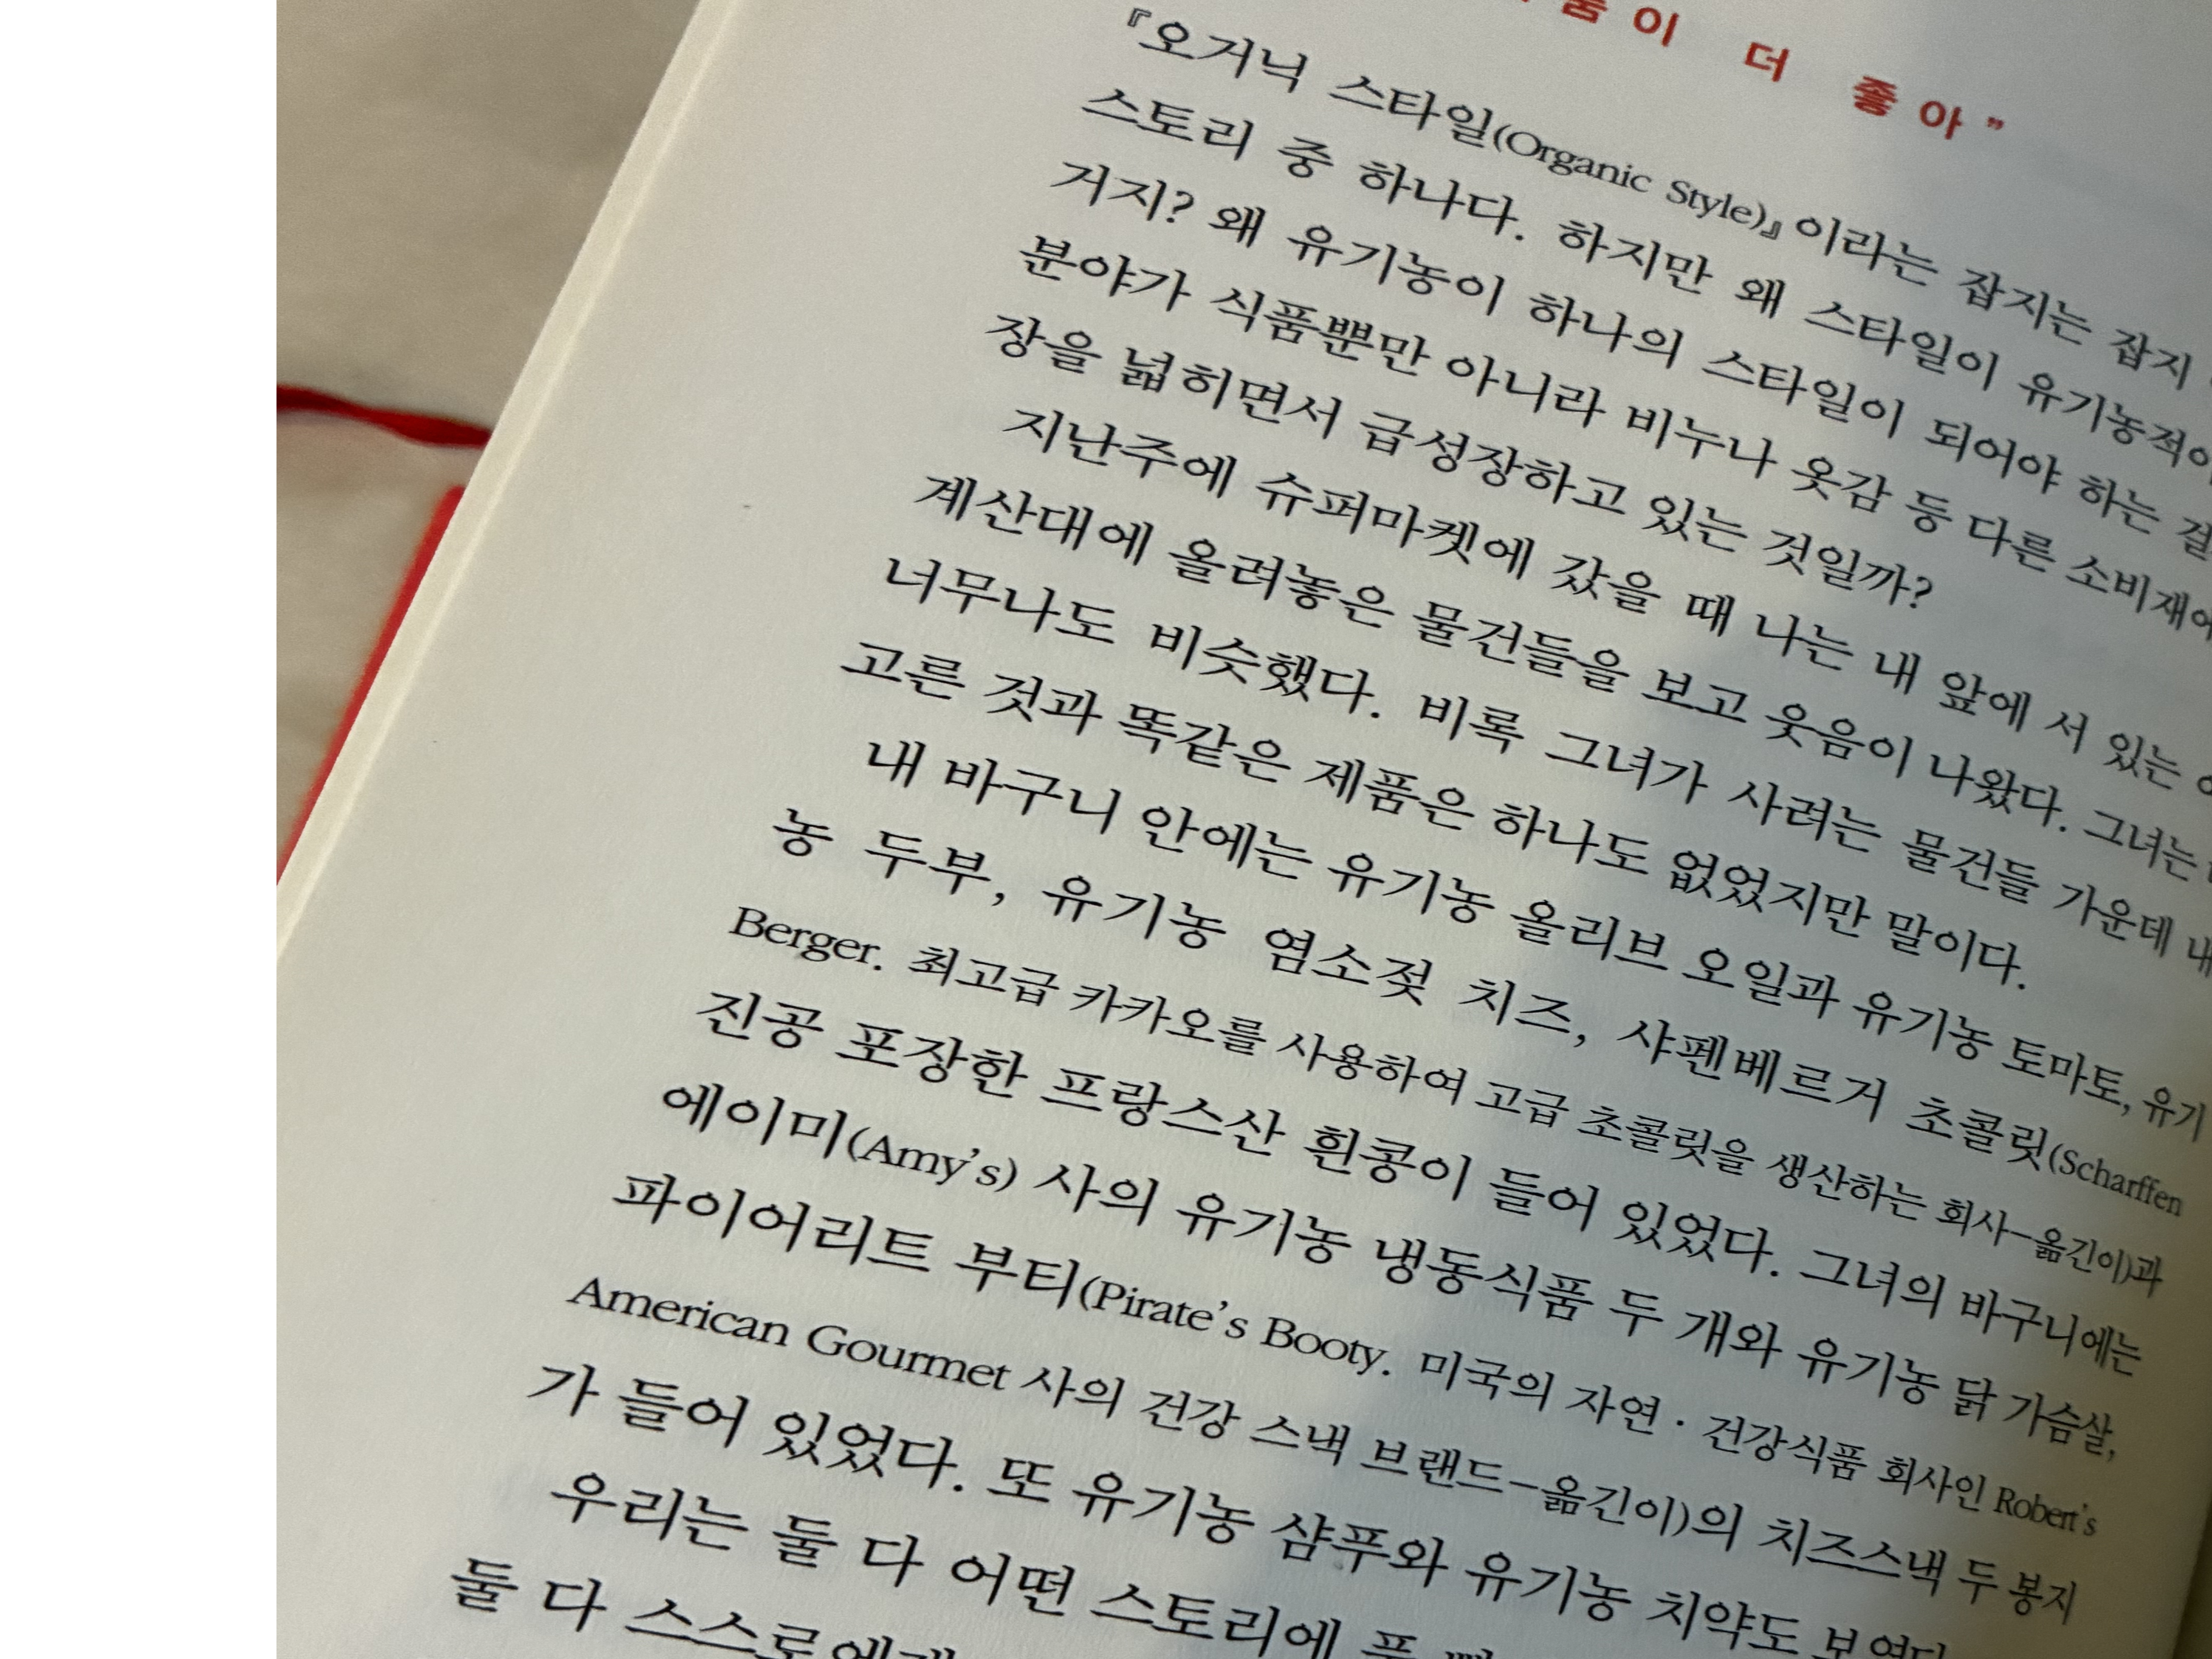 이 더 좋아”
『오거닉 스타일(Organic Style)』이라는 잡지는 잡지
스토리 중 하나다. 하지만 왜 스타일이 유기농적이
거지? 왜 유기농이 하나의 스타일이 되어야 하는 걸
분야가 식품뿐만 아니라 비누나 옷감 등 다른 소비재에
장을 넓히면서 급성장하고 있는 것일까?
지난주에 슈퍼마켓에 갔을 때 나는 내 앞에 서 있는
계산대에 올려놓은 물건들을 보고 웃음이 나왔다. 그녀는
너무나도 비슷했다. 비록 그녀가 사려는 물건들 가운데 내
고른 것과 똑같은 제품은 하나도 없었지만 말이다.
내 바구니 안에는 유기농 올리브 오일과 유기농 토마토, 유기
농 두부, 유기농 염소젖 치즈, 샤펜베르거 초콜릿(Scharffen
Berger. 최고급 카카오를 사용하여 고급 초콜릿을 생산하는 회사-옮긴이)과
진공 포장한 프랑스산 흰콩이 들어 있었다. 그녀의 바구니에는
에이미(Amy’s) 사의 유기농 냉동식품 두 개와 유기농 닭 가슴살,
파이어리트 부티(Pirate’s Booty. 미국의 자연·건강식품 회사인 Robert’s
American Gourmet 사의 건강 스낵 브랜드-옮긴이)의 치즈스낵 두 봉지
가 들어 있었다. 또 유기농 샴푸와 유기농 치약도 보였다
우리는 둘 다 어떤 스토리에 푹
둘 다 스스로에게